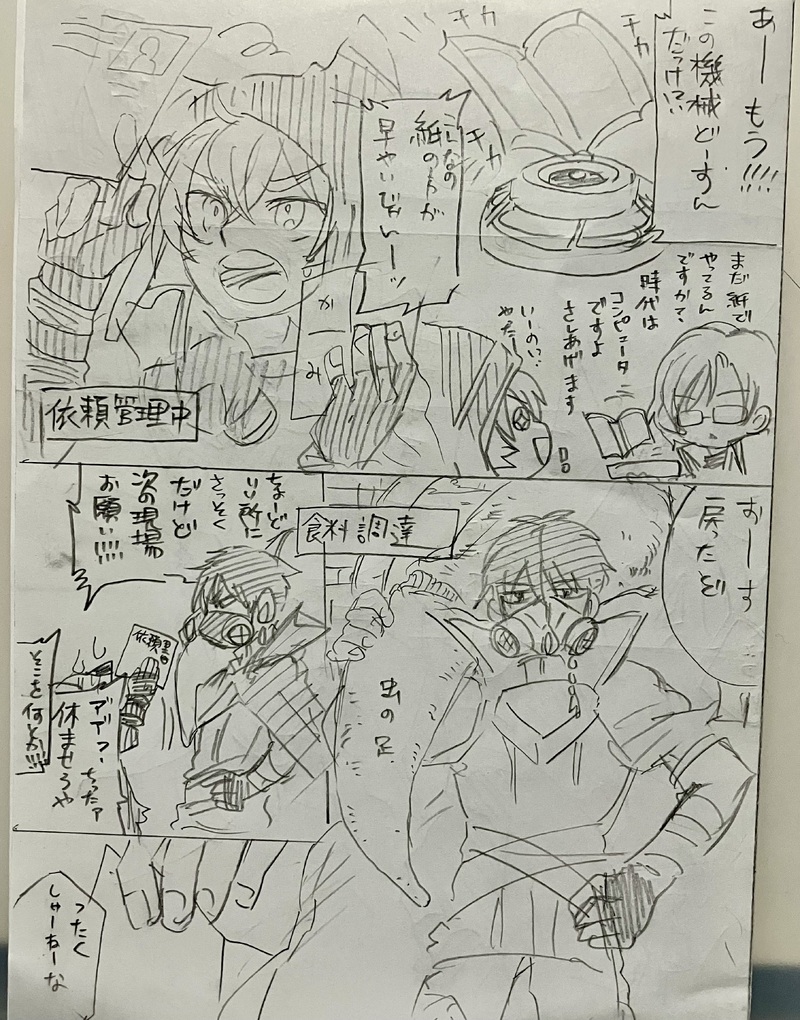 あーもう!!!!
この機械どーすん
だっけ!?
チカ
チカ
チカ
こんなの
紙の方が
早やいじゃんーーッ
かーみ
依頼管理中
まだ紙で
やってるん
ですかて、
時代は
コンピュータ
ですよ
さしあげます
いーのい…
やたー
おーす
戻ったぞ
食料調達
虫の足
ちょーど
いい所に
さっそく
だけど
次の現場
お願い!!!!
依頼書
アデフー
ちったァ
休ませろや
そこを何とか!!!
ったく
しゃーねーな